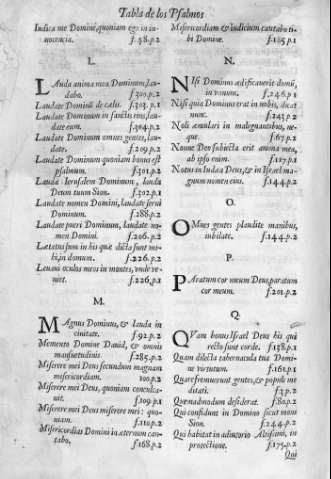 Tabla de los Psalmos
Iudica me Domine, quoniam ego in in-
nocencia. f.98.p.2
L.
LAuda anima mea Dominum, lau-
dabo. f.300.p.2
Laudate Dominũ de cælis. f.303.p.1
Laudate Dominum in sanctis eius, lau-
date eum. f.304.p.2
Laudate Dominum omnes gentes, lau-
date. f.209.p.2
Laudate Dominum quoniam bonus est
psalmum. f.301.p.2
Lauda Ierusalem Dominum, lauda
Deum tuum Sion. f.302.p.1
Laudate nomen Domini, laudate serui
Dominum. f.288.p.2
Laudate pueri Dominum, laudate no-
men Domini. f.206.p.2
Lætatus sum in his quæ dicta sunt mi-
hi, in domum. f.226.p.2
Leuaui oculos meos in montes, vnde ve-
niet. f.226.p.1
M.
MAgnus Dominus, & lauda in
ciuitate. f.92.p.2
Memento Domine Dauid, & omnis
mansuetudinis f.285.p.2
Miserere mei Deus secundum magnam
misericordiam. 100.p.2
Miserere mei Deus, quoniam conculca-
uit. f.109.p.1
Miserere mei Deus miserere mei: quo-
niam. f.110.p.2
Misericordias Domini in æternum can-
tabo. f.168.p.2
Misericordiam & iudicium cantabo ti-
bi Domine. f.185.p.1
N.
NIsi Dominus ædificauerit domũ,
in vanum. f.246.p.1
Nisi quia Dominus erat in nobis, dicat
nunc. f.243.p.2
Noli æmulari in malignantibus, ne-
que. f.67.p.2
Nonne Deo subiecta erit anima mea,
ab ipso enim. f.117.p.1
Notus in Iudæa Deus, & in Israel ma-
gnum nomen eius. f.144.p.2
O.
OMnes gentes plaudite manibus,
iubilate. f.144.p.2
P.
PAratum cor meum Deus, paratum
cor meum. f.201.p.2
Q.
QVam bonus Israel Deus his qui
recto sunt corde. f.138.p.1
Quam dilecta tabernacula tua Domi-
ne virtutum. f.161.p.1
Quare fremuerunt gentes, & populi me
ditati. f.3.p.2
Quemadmodum desiderat. f.80.p.2
Qui confidunt in Domino sicut mons
Sion. f.244.p.2
Qui habitat in adiutorio Altissimi, in
protectione. f.175.p.2
Qui